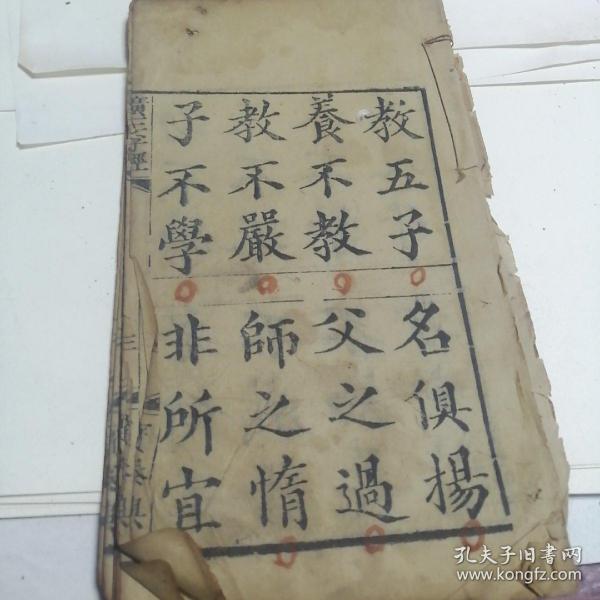 教五子
名俱揚
養不教
父之過
教不嚴
師之惰
子不學
非所宜
廣三字經
三
孔夫子旧书网
www.kongfz.com